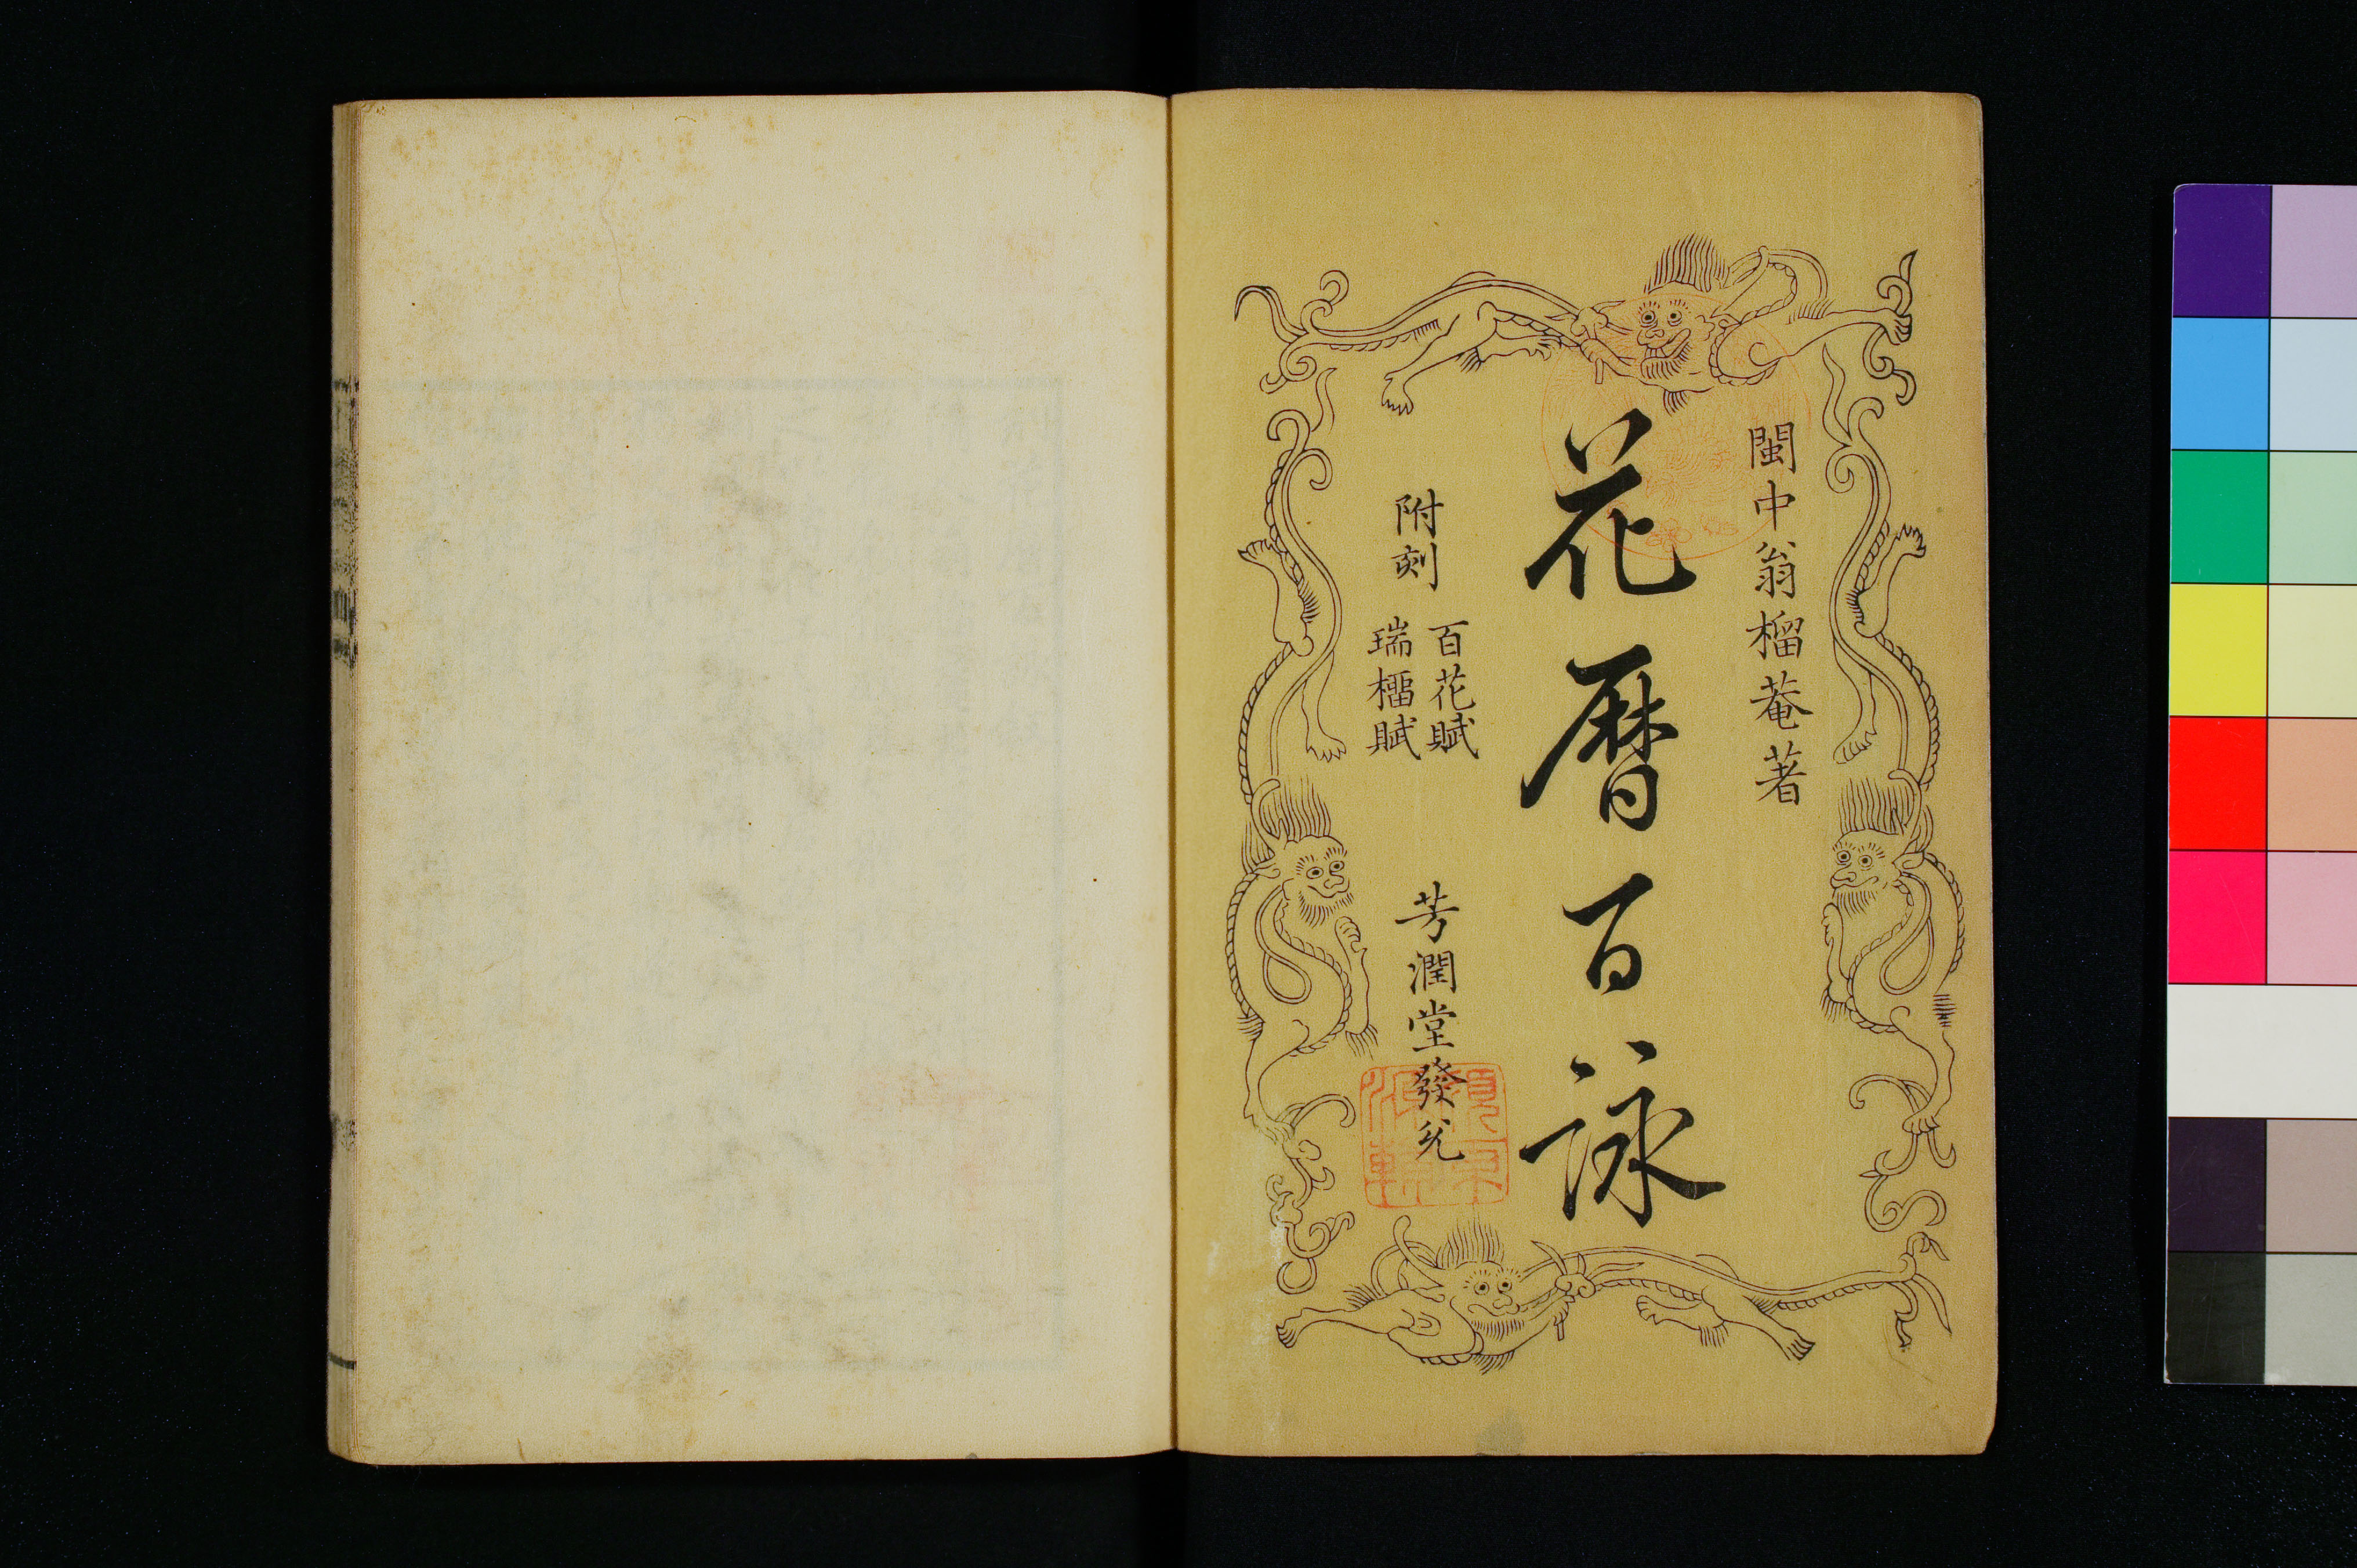 閩中翁榴菴著
花曆百詠
附刻
百花賦
瑞橊賦
芳潤堂發兌